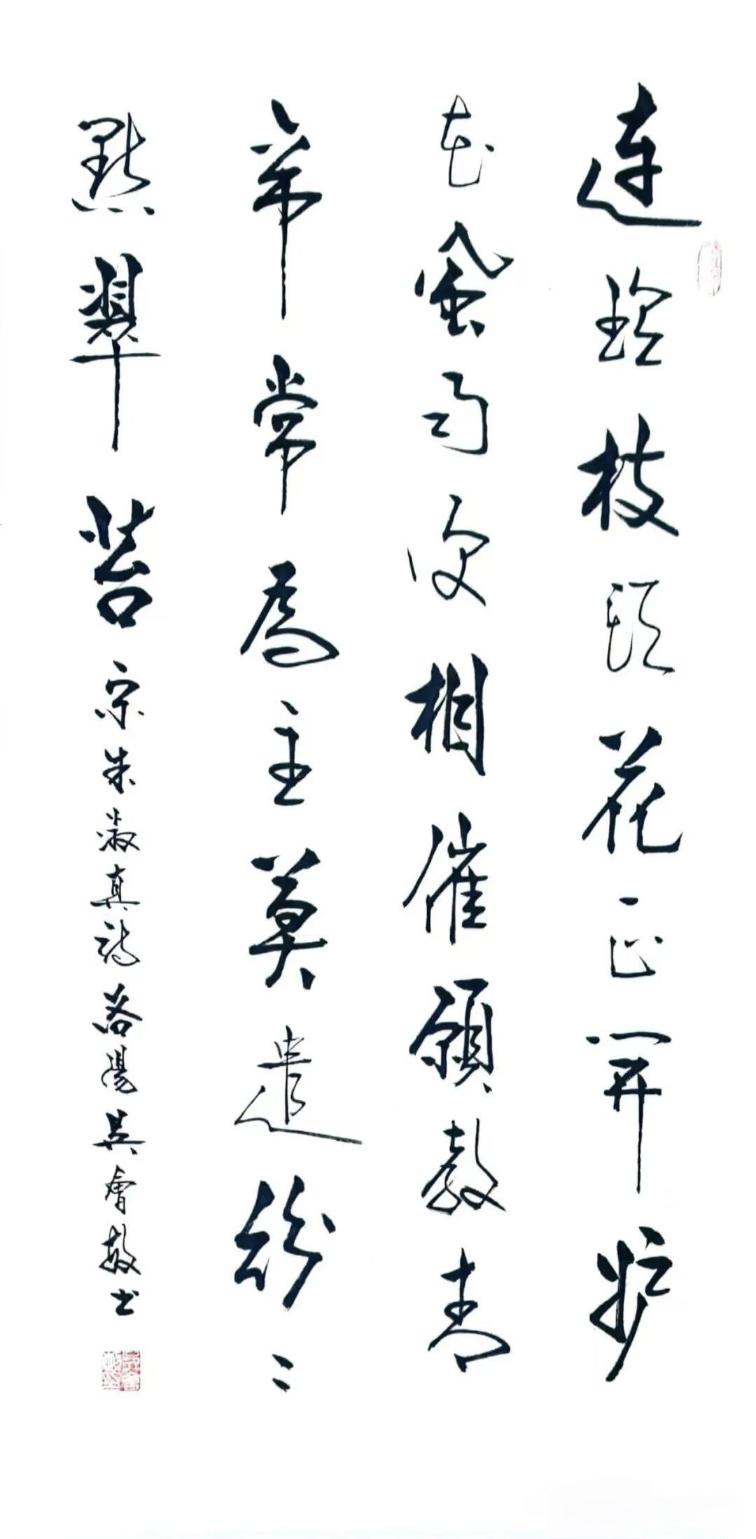 連理枝頭花正開妒
花風雨便相催願教青
帝常為主莫遣紛〻
點翠苔 宋朱淑真詩 洛陽吳會敏書